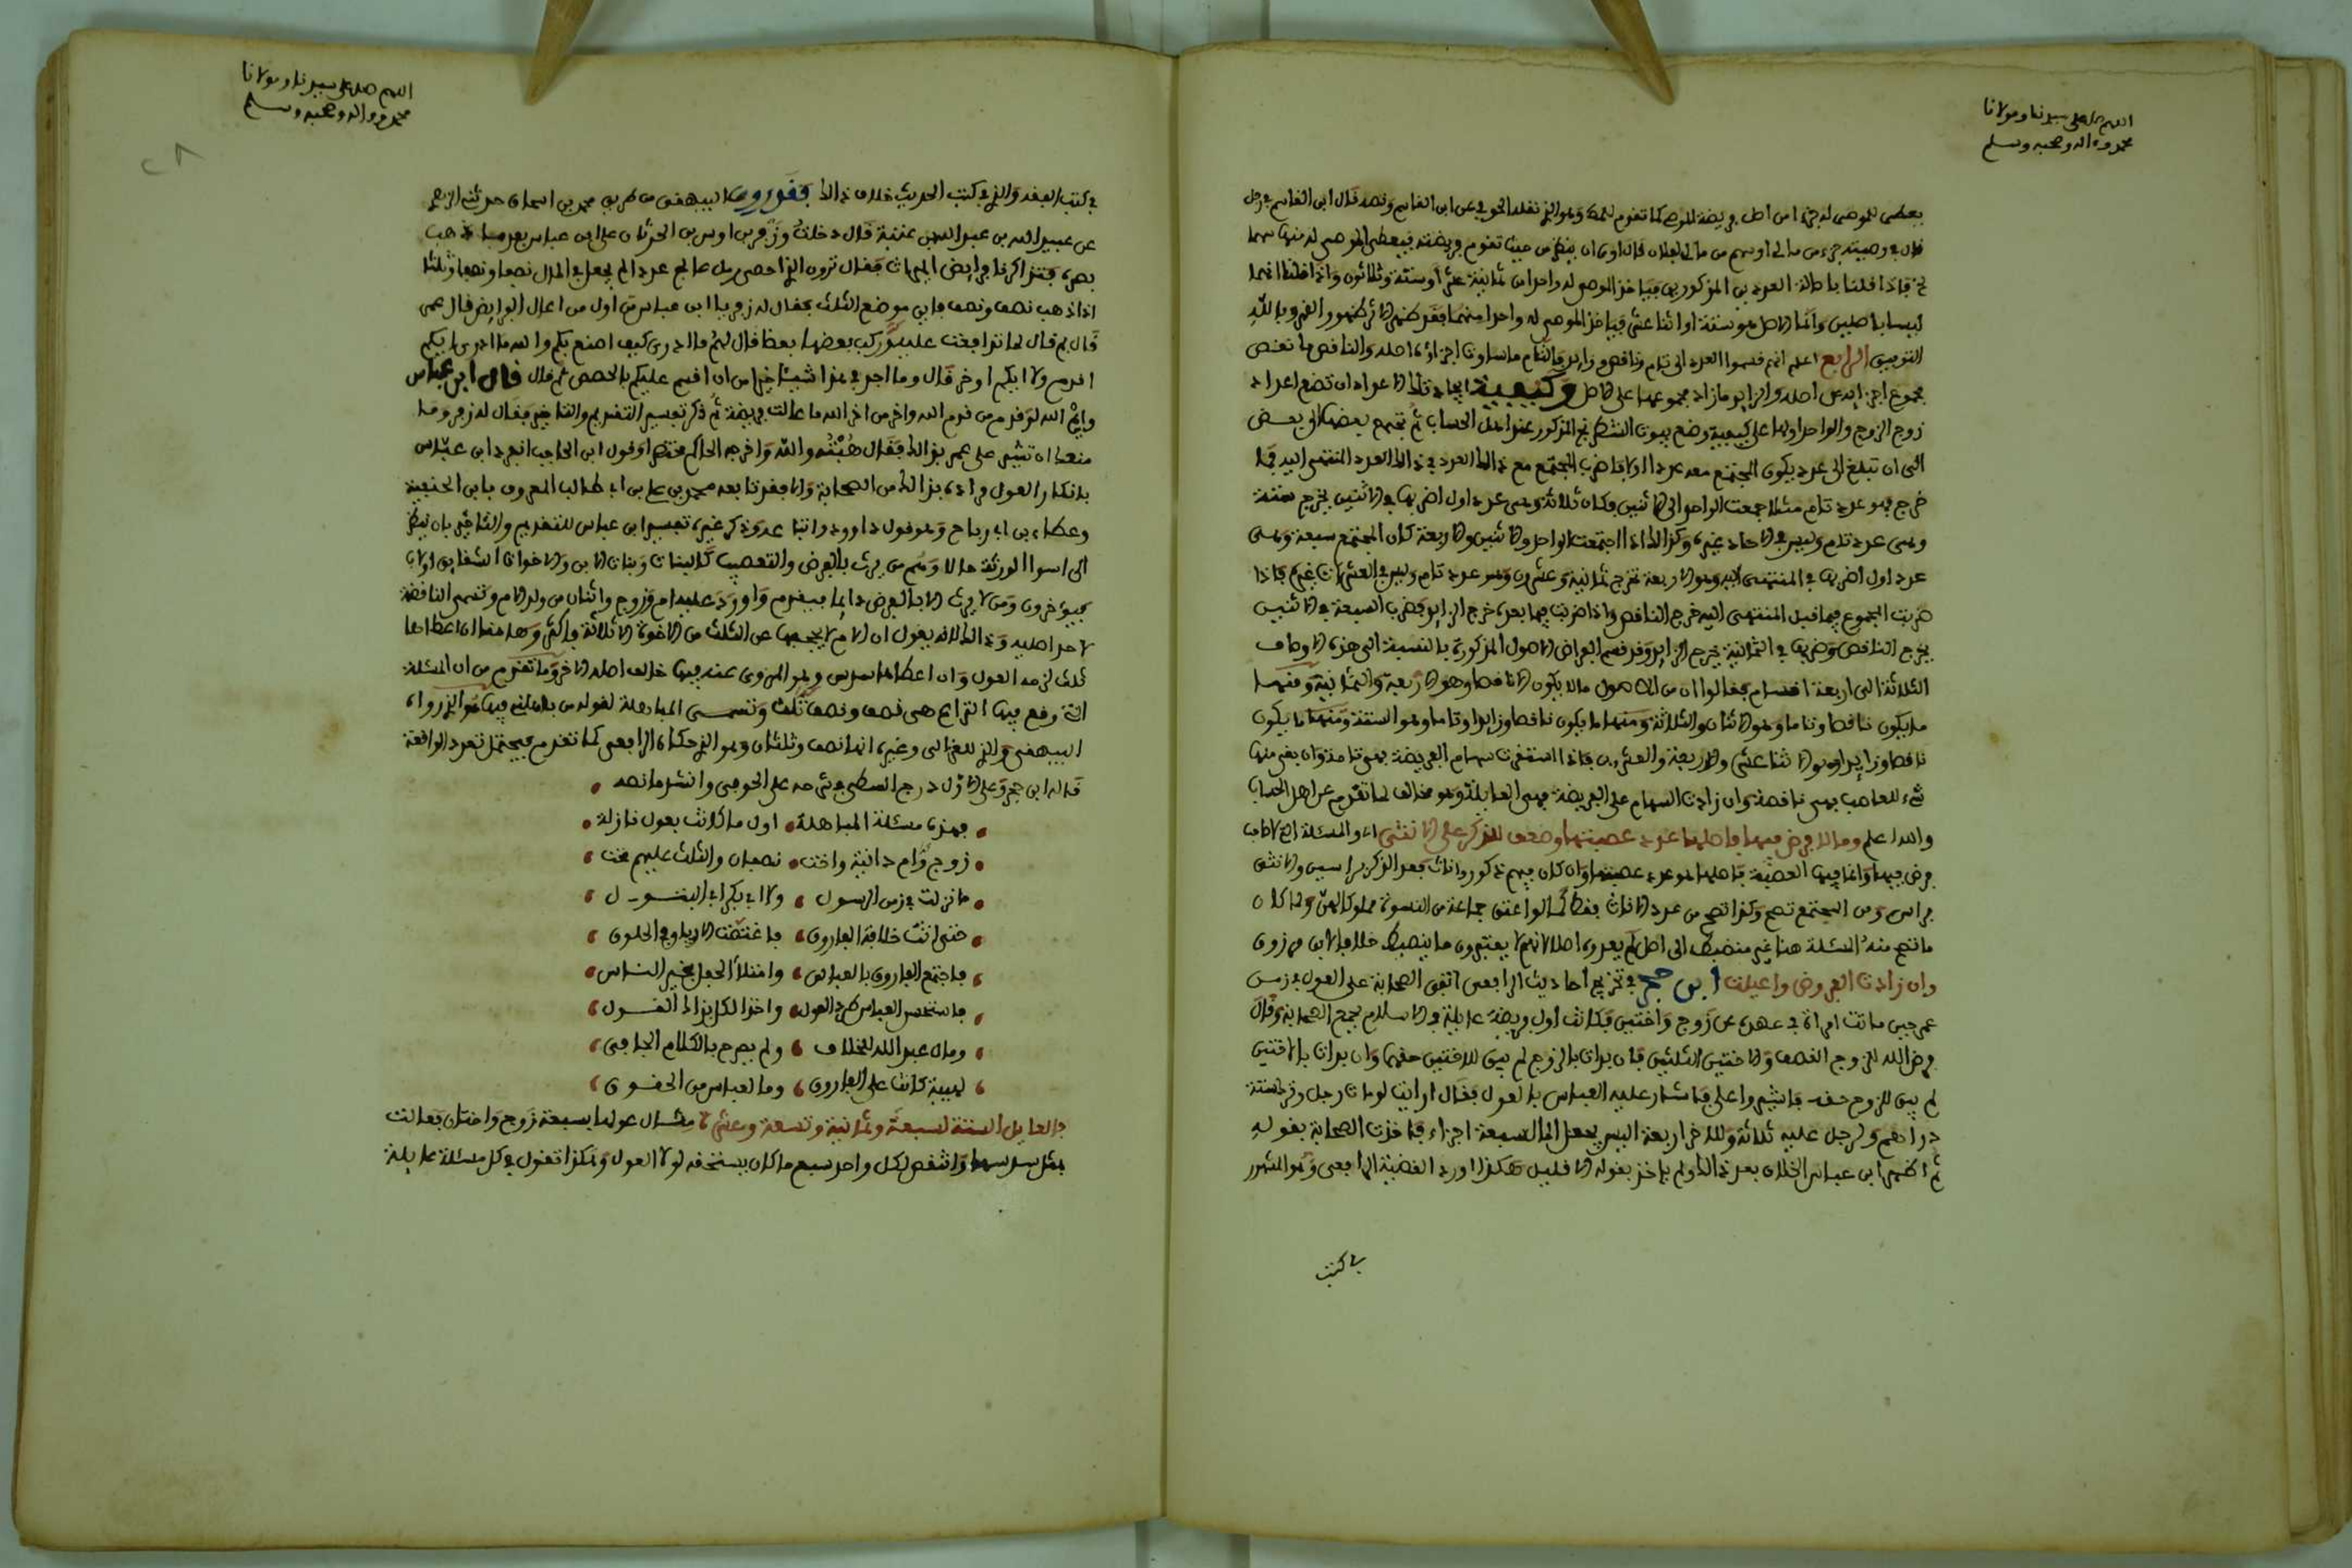 اللهم صل على سيدنا ومولانا
محمد وءاله وصحبه وسلم
يعطى للموصى له جزءا من اصل فريضة الموصى كما تقوم وهو الذي نقله الحوفي عن ابن القاسم ونصه قال ابن القاسم في رجل
قال في وصيته جزء من مالي او سهم من مالي لفلان قال ارى ان ينظر من حيث تقوم فريضته فيعطى الموصى له منها سهما
فاذا قلنا باصالة العددين المذكورين فياخذ الموصى له واحدا من ثمانية عشر او ستة وثلاثون واذا قلنا انهما
ليسا باصلين وانما الاصل هو ستة او اثنا عشر فياخذ الموصى له واحدا منهما وبالله
التوفيق الرابع اعلم انهم قسموا العدد الى تام وناقص وزايد فالتام ما ساوت اجزاؤه اصله والناقص ما نقص
مجموع اجزايه عن اصله والزايد ما زاد مجموعها على الاصل وكيفية ايجاد تلك الاعداد ان تضع اعداد
زوج الزوج والواحد اولها على كيفية وضع بيوت الشطرنج المذكور عند اهل الحساب ثم تجمع بعضها الى بعض
الى ان تبلغ الى عدد يكون المجتمع معه عددا اولا فاضرب المجتمع مع ذلك العدد في ذلك العدد المنتهى اليه فما
خرج فهو عدد تام مثلا جمعت الواحد الى الاثنين فكان ثلاثة وهى عدد اول اضربها في الاثنين يخرج ستة
وهى عدد تام وليس في الاحاد غيره وكذلك اذا اجتمعت الواحد والاثنين والاربعة كان المجتمع سبعة وهى
عدد اول اضربها في المنتهى اليه وهو الاربعة تخرج ثمانية وعشرون وهو عدد تام وليس في العشرات غيره فاذا
ضربت المجموع فيما قبل المنتهى اليه خرج الناقص واذا ضربت فيما بعده خرج الزايد فضرب السبعة في الاثنين
يخرج الناقص وضربها في الثمانية يخرج الزايد وقد قسم الفراض الاصول المذكورة بالنسبة الى هذه الاوصاف
الثلاثة الى اربعة اقسام فقالوا ان من الاصول ما لا يكون الا ناقصا وهو الاربعة والثمانية ومنها
ما يكون ناقصا وتاما وهو الاثنان والثلاثة ومنها ما يكون ناقصا وزايدا وتاما وهو الستة ومنها ما يكون
ناقصا وزايدا وهو الاثنا عشر والاربعة والعشرون فاذا استغرقت سهام الفريضة فهى تامة وان بقى منها
شيء للعاصب فهى ناقصة وان زادت السهام على الفريضة فهى العايلة وهو مخالف لما تقدم عن اهل الحساب
والله اعلم وما لا فرض فيها فاصلها عدد عصبتها وضعف للذكر على الانثى اي والمسئلة التي لا صاحب
فرض فيها وانما فيها العصبة فاصلها هو عدد عصبتها وان كان فيهم ذكور واناث فعد الذكر براسين والانثى
براس ومن المجتمع تصح وكذا تصح من عدد الاناث فقط كما لو اعتق جماعة من النسوة مملوكا لهن ولما كان
ما تصح منه المسئلة هنا غير منضبط الى اصل لم يعدوه اصلا لانهم لا يعتبرون ما ينضبط خلافا لابن مرزوق
وان زادت الفروض واعيلت ابن حجر في تخريج احاديث الرافعى اتفق الصحابة على العول في زمن
عمر حين ماتت امراة في عهده عن زوج واختين فكانت اول فريضة عايلة في الاسلام فجمع الصحابة وقال
فرض الله للزوج النصف وللاختين الثلثين فان بدات بالزوج لم يبق للاختين حقهما وان بدات بالاختين
لم يبق للزوج حقه فاشيروا علي فاشار عليه العباس بالعول فقال ارايت لو مات رجل وترك ستة
دراهم ولرجل عليه ثلاثة وللاخر اربعة اليس يجعل المال سبعة اجزاء فاخذت الصحابة بقوله
ثم اظهر ابن عباس الخلاف بعد ذلك ولم ياخذ بقوله الا قليل هكذا اورد القضية الرافعى وهو المشهور
في كتب
اللهم صل على سيدنا ومولانا
محمد وءاله وصحبه وسلم
٢٨
في كتب الفقه والذي في كتب الحديث خلاف ذلك فقد روى البيهقى من طريق محمد بن اسحاق حدثنا الزهري
عن عبيد الله بن عبد الله بن عتبة قال دخلت وزفر بن اوس بن الحدثان على ابن عباس بعد ما ذهب
بصره فتذاكرنا فرايض الميراث فقال ترون الذي احصى رمل عالج عددا لم يجعل في المال نصفا ونصفا وثلثا
اذا ذهب نصف ونصف فاين موضع الثلث فقال له زفر يا ابن عباس من اول من اعال الفرايض قال عمر
قال لم قال لما تدافعت عليه وركب بعضها بعضا قال لهم ما ادري كيف اصنع بكم والله ما ادري ايكم
اقدم ولا ايكم اوخر قال وما اجد في هذا شيئا خيرا من ان اقسم عليكم بالحصص ثم قال قال ابن عباس
وايم الله لو قدم من قدم الله واخر من اخر الله ما عالت فريضة ثم ذكر تفسير التقديم والتاخير فقال له زفر وما
منعك ان تشير على عمر بذلك فقال هبته والله واخرجه الحاكم مختصرا وقول ابن الحاجب انفرد ابن عباس
بانكار العول مراده بذلك من الصحابة والا فقد تابعه محمد بن علي بن ابي طالب المعروف بابن الحنفية
وعطاء بن ابي رباح وهو قول داوود واتباعه وذكر غيره تفسير ابن عباس للتقديم والتاخير بان ينظر
الى اسوا الورثة حالا وهم من يرث بالفرض والتعصيب كالبنات وبنات الابن والاخوات الشقايق او لاب
فيوخرون ومن لا يرث الا بالفرض دايما فيقدم واورد عليه ام وزوج واثنان من ولد الام وتسمى الناقضة
لاحد اصليه وذلك لانه يقول ان الام لا يحجبها عن الثلث من الاخوة الا ثلاثة فاكثر وهاهنا ان اعطاها
ثلثا لزمه العول وان اعطاها سدس وهو المروى عنه فيها خالف اصله الاخر وما تقدم من ان المسئلة
التي وقع فيها النزاع هى نصف ونصف وثلث وتسمى المباهلة لقوله من باهلني فيها هو الذي رواه
البيهقى والذي للغزالى وغيره انها نصف وثلثان وهو الذي حكاه الرافعى كما تقدم فيحتمل تعدد الواقعة
قاله ابن حجر وعلى الاول درج السطى في شرحه على الحوفى وانشد ما نصه
فهذه مسئلة المباهلة اول ما كانت بعول نازلة
زوج وام دانية واخت نصفان والثلث عليهم بخت
ما نزلت في زمن الرسول ولا ابي بكر ابي البتول
حتى اتت خلافة الفاروق فاغتصت الارياق في الحلوق
فاجتمع الفاروق بالعباس وامتلأ الحفل بخير الناس
فاستحسن العباس طرد العول واخذ الكل بذاك القول
ومال عبد الله للخلاف ولم يصرح بالكلام الجافى
لهيبة كانت على الفاروق وما لعباس من الحقوق
فالعايل الستة لسبعة وثمانية وتسعة وعشرة مثال عولها بسبعة زوج واختان فعالت
بمثل سدسها وانتقص لكل واحد سبع ما كان يستحقه لولا العول وهكذا تقول في كل مسئلة عايلة